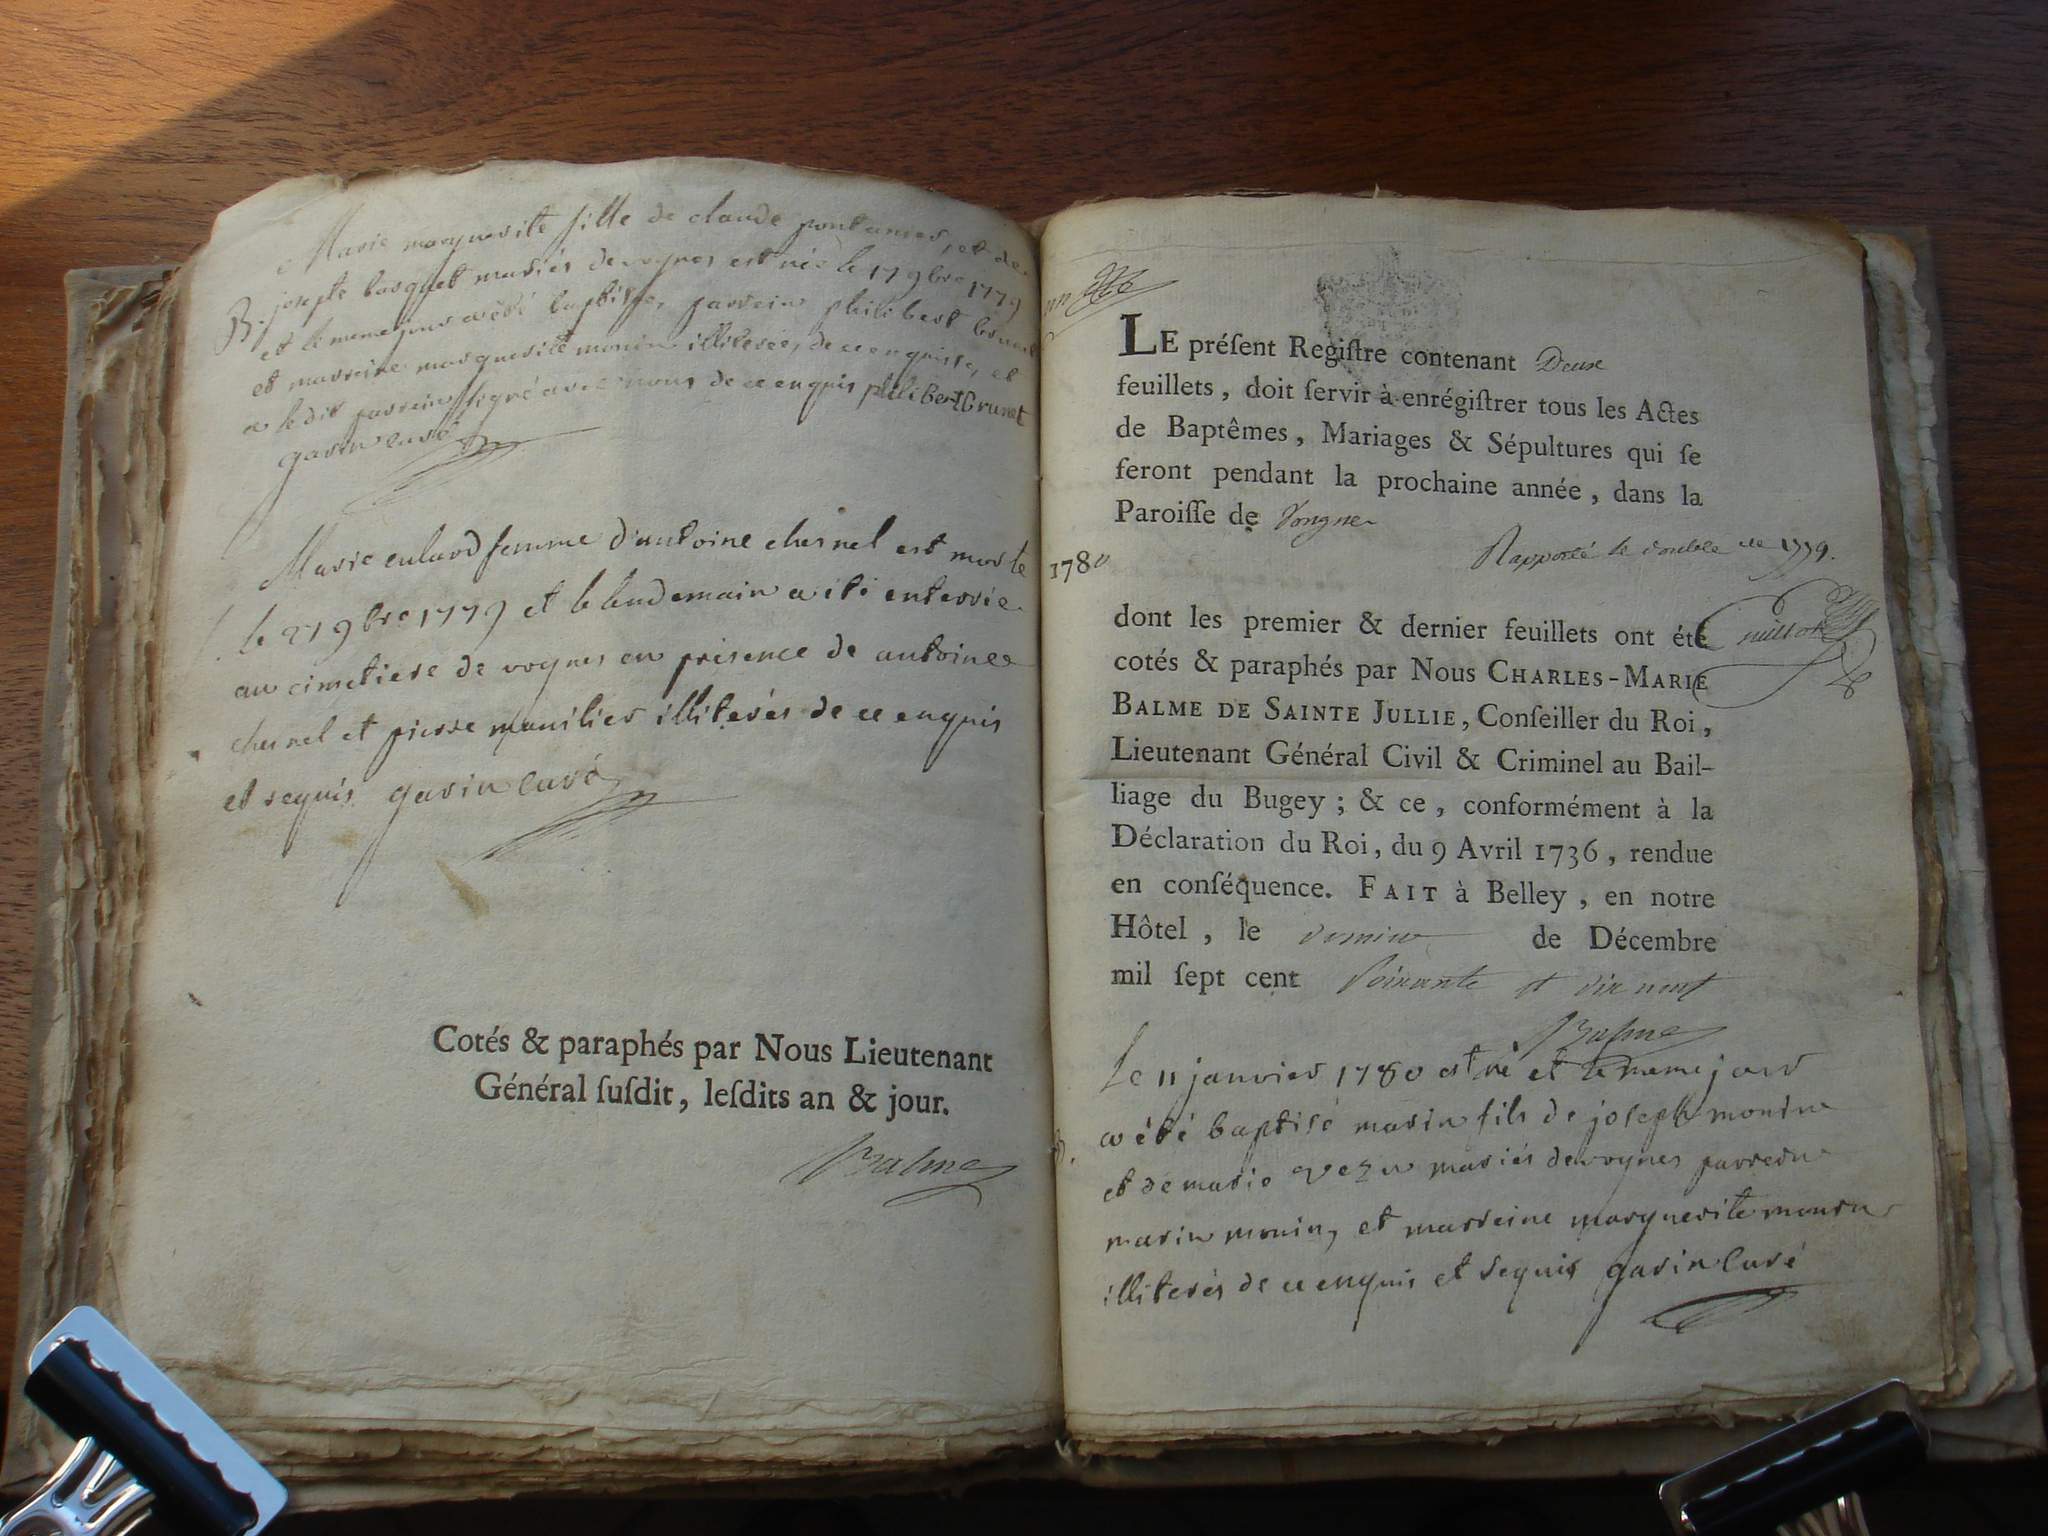 Marie marguerite fille de claude pontanier, et de
B. josepte borquet mariés de vognes est née le 17 9bre 1779
et le meme jour a été baptisée, parrein philibert brunet
et marreine marguerite monin illiterée, de ce enquise, et
a le dit parrein signé avec nous de ce enquis philibert Brunet
garin curé
Marie eulard femme d'antoine chesnel est morte
le 27 9bre 1779 et le lendemain a été enterrée
au cimetiere de vognes en présence de antoine
chesnel et pierre manilier illiterés de ce enquis
et requis garin curé
Cotés & paraphés par Nous Lieutenant
Général ſuſdit, leſdits an & jour.
Balme
LE préſent Regiſtre contenant Deux
feuillets, doit ſervir à enrégiſtrer tous les Actes
de Baptêmes, Mariages & Sépultures qui ſe
feront pendant la prochaine année, dans la
Paroiſſe de Vongne
Rapporté le double de 1779.
1780
dont les premier & dernier feuillets ont été
cotés & paraphés par Nous CHARLES-MARIE
BALME DE SAINTE JULLIE, Conſeiller du Roi,
Lieutenant Général Civil & Criminel au Bail-
liage du Bugey ; & ce, conformément à la
Déclaration du Roi, du 9 Avril 1736, rendue
en conſéquence. FAIT à Belley, en notre
Hôtel, le dernier de Décembre
mil ſept cent Soixante et dix neuf
Balme
Le 11 janvier 1780 est né et le meme jour
B. a été baptisé marin fils de joseph monin
et de marie vezu mariés de vognes parrein
marin monin, et marreine marguerite monin
illiterés de ce enquis et requis garin curé